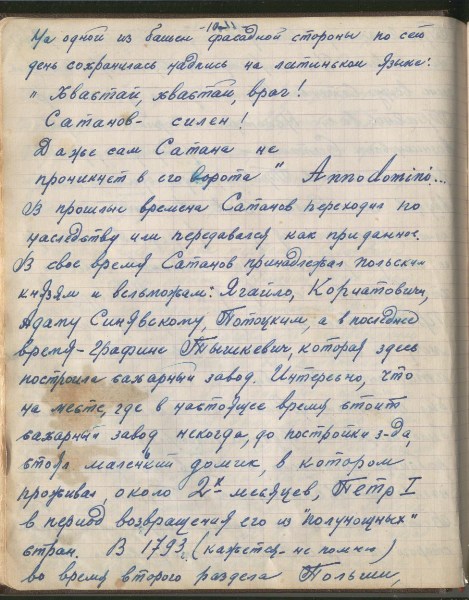 -10-
На одной из башен фасадной стороны по сей
день сохранилась надпись на латинском языке:
„ Хвастай, хвастай, враг!
Сатанов - силен!
Даже сам Сатана не
проникнет в его ворота" Anno domini...
В прошлые времена Сатанов переходил по
наследству или передавался как приданное.
В свое время Сатанов принадлежал польским
князьям и вельможам: Ягайло, Кориатовичи,
Адаму Синявскому, Потоцким, а в последнее
время - графине Тышкевич, которая здесь
построила сахарный завод. Интересно, что
на месте, где в настоящее время стоит
сахарный завод некогда, до постройки з-да,
стоял маленький домик, в котором
проживал, около 2х месяцев, Петр I
в период возвращения его из "полунощных"
стран. В 1793 (кажется - не помню)
во время второго раздела Польши,